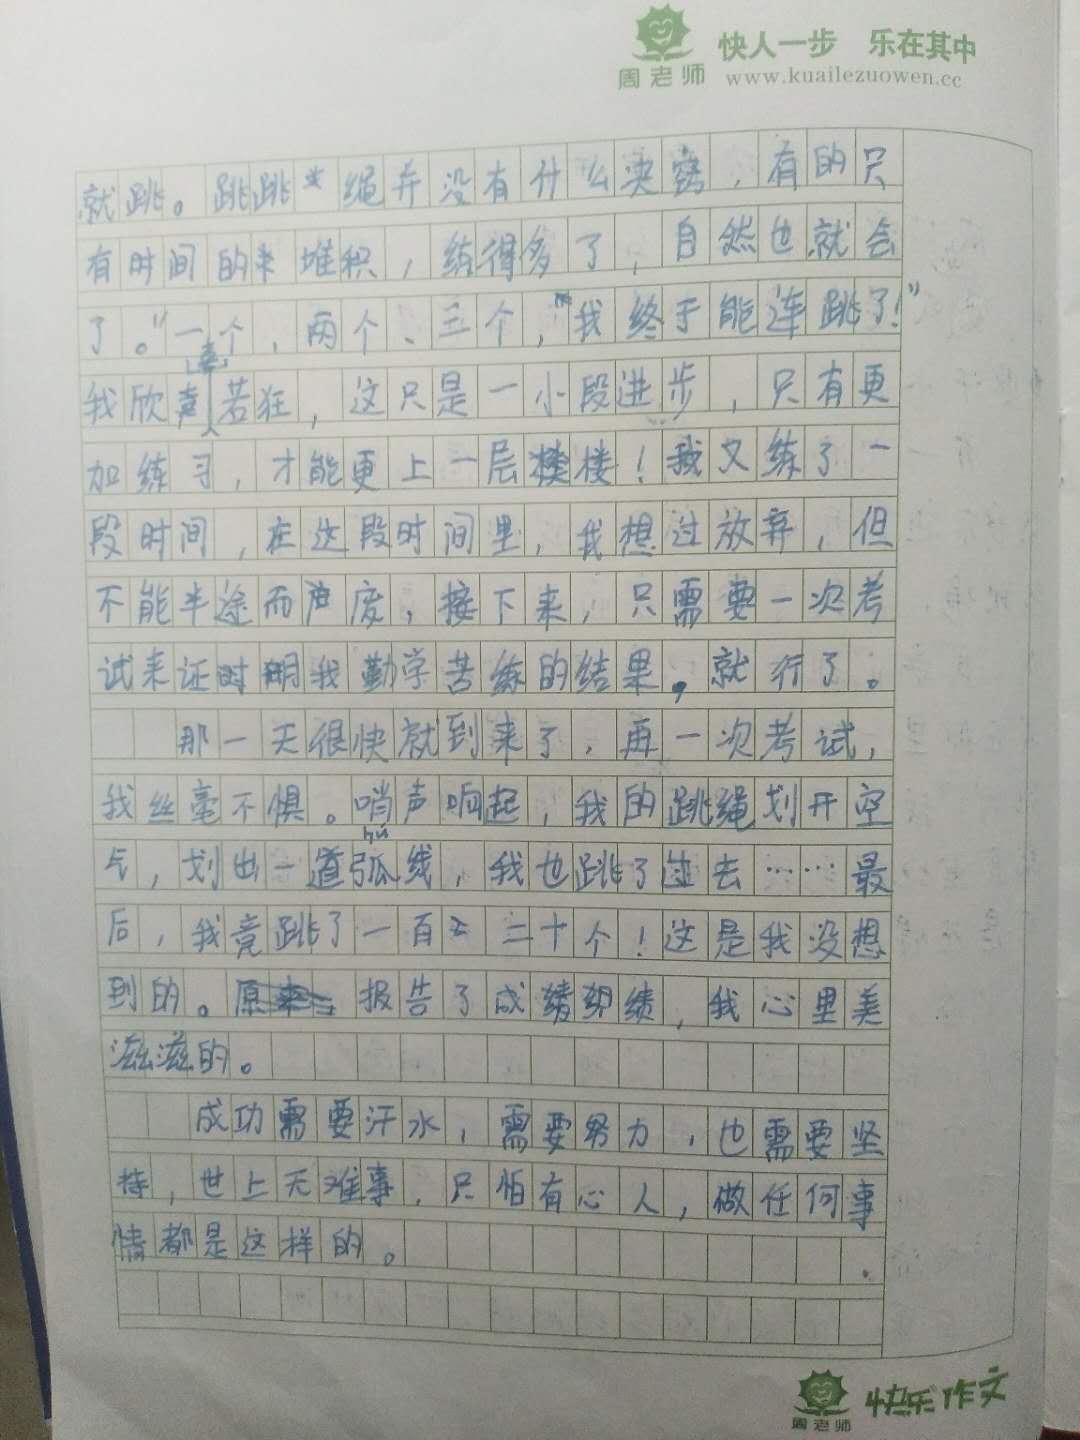 快人一步 乐在其中
周老师 www.kuailezuowen.cc
就跳。跳跳绳并没有什么决窍，有的只
有时间的堆积，练得多了，自然也就会
了。“一个，两个、三个，“我终于能连跳了！”
我欣喜若狂，这只是一小段进步，只有更
加练习，才能更上一层楼！我又练了一
段时间，在这段时间里，我想过放弃，但
不能半途而废，接下来，只需要一次考
试来证明我勤学苦练的结果，就行了。
那一天很快就到来了，再一次考试，
我丝毫不惧。哨声响起，我的跳绳划开空
hú
气，划出一道弧线，我也跳了过去……最
后，我竟跳了一百二十个！这是我没想
到的。报告了成绩，我心里美
滋滋的。
成功需要汗水，需要努力，也需要坚
持，世上无难事，只怕有心人，做任何事
情都是这样的。
周老师 快乐作文